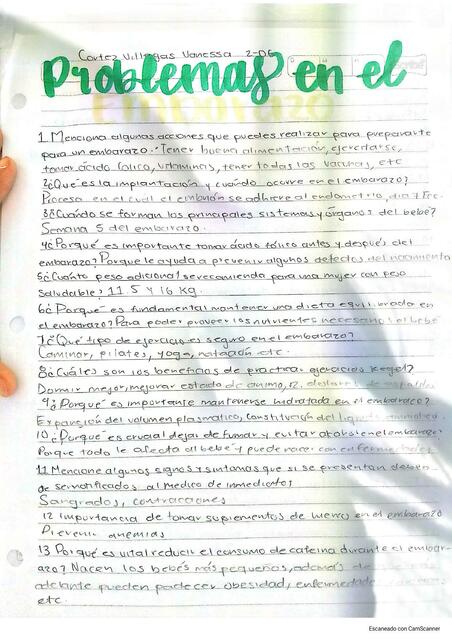 Cortez Villegas Vanessa 2-DG
Problemas en el
1. Menciona algunas acciones que puedes realizar para prepararte
para un embarazo. Tener buena alimentación, ejercitarse,
tomar ácido fólico, vitaminas, tener todas las vacunas, etc
2¿Qué es la implantación y cuándo ocurre en el embarazo?
Proceso en el cual el embrión se adhiere al endometrio, dia 7
3¿Cuándo se forman los principales sistemas y órganos del bebé?
Semana 5 del embarazo.
4¿Porqué es importante tomar ácido fólico antes y después del
embarazo? Porque le ayuda a prevenir algunos defectos del nacimiento
5¿Cuánto peso adicional se recomienda para una mujer con peso
saludable? 11.5 y 16 kg.
6¿Porqué es fundamental mantener una dieta equilibrada en
el embarazo? Para poder proveer los nutrientes necesarios al bebé
7¿Qué tipo de ejercicio es seguro en el embarazo?
Caminar, pilates, yoga, natación etc.
8¿Cuáles son los beneficios de practicar ejercicios Kegel?
Dormir mejor, mejorar estado de animo,
9¿Porqué es importante mantenerse hidratada en el embarazo?
Expansión del volumen plasmático, constitución del liquido
10¿Porqué es crucial dejar de fumar y evitar alcohol en el embarazo?
Porque todo le afecta al bebé y puede nacer con enfermedades
11 Menciona algunos signos y sintomas que si se presentan deben
de ser notificados al medico de inmediato
Sangrados, contracciones
12 importancia de tomar suplementos de hierro en el embarazo
Prevenir anemias
13 Porqué es vital reducir el consumo de cafeina durante el embar-
azo? Nacen los bebés más pequeños, además de
adelante pueden padecer obesidad, enfermedades
etc.
Escaneado con CamScanner